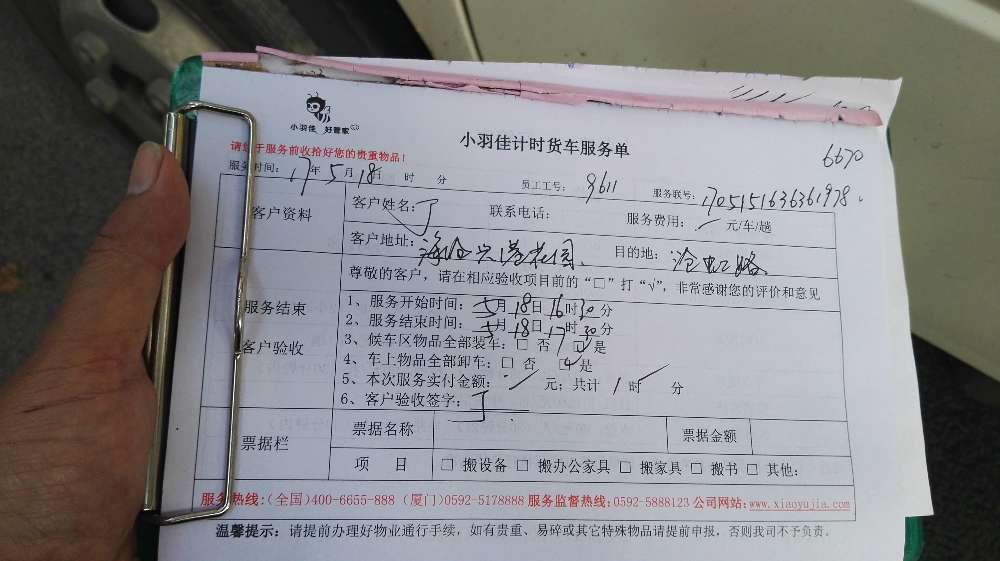 小羽佳 好管家
小羽佳计时货车服务单
6670
请您于服务前收拾好您的贵重物品!
服务时间: 17年 5月 18日 时 分 员工工号: 9611 服务联号: 170515163636197８
客户资料 客户姓名: 丁 联系电话: 服务费用: 元/车/趟
客户地址: 海沧兴港花园 目的地: 沧虹路
尊敬的客户,请在相应验收项目前的“□”打“√”,非常感谢您的评价和意见
服务结束
客户验收
1、服务开始时间: 5月 18日 16时 30分
2、服务结束时间: 5月 18日 17时 30分
3、候车区物品全部装车: □ 否 ☑ 是
4、车上物品全部卸车: □ 否 ☑ 是
5、本次服务实付金额: 元; 共计 1 时 分
6、客户验收签字: 丁
票据栏 票据名称 票据金额
项 目 □ 搬设备 □ 搬办公家具 □ 搬家具 □ 搬书 □ 其他:
服务热线:(全国)400-6655-888 (厦门)0592-5178888 服务监督热线:0592-5888123 公司网站:www.xiaoyujia.com
温馨提示: 请提前办理好物业通行手续,如有贵重、易碎或其它特殊物品请提前申报,否则我司不予负责。